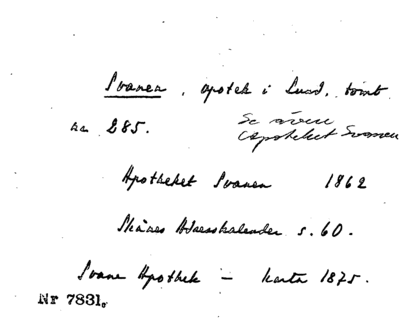 Svanen, apotek i Lund, tomt
na 285.
Se även
Apoteket Svanen
Apotheket Svanen 1862
Skånes Adresskalender s. 60.
Svane Apothek — karta 1875.
Nr 7831.